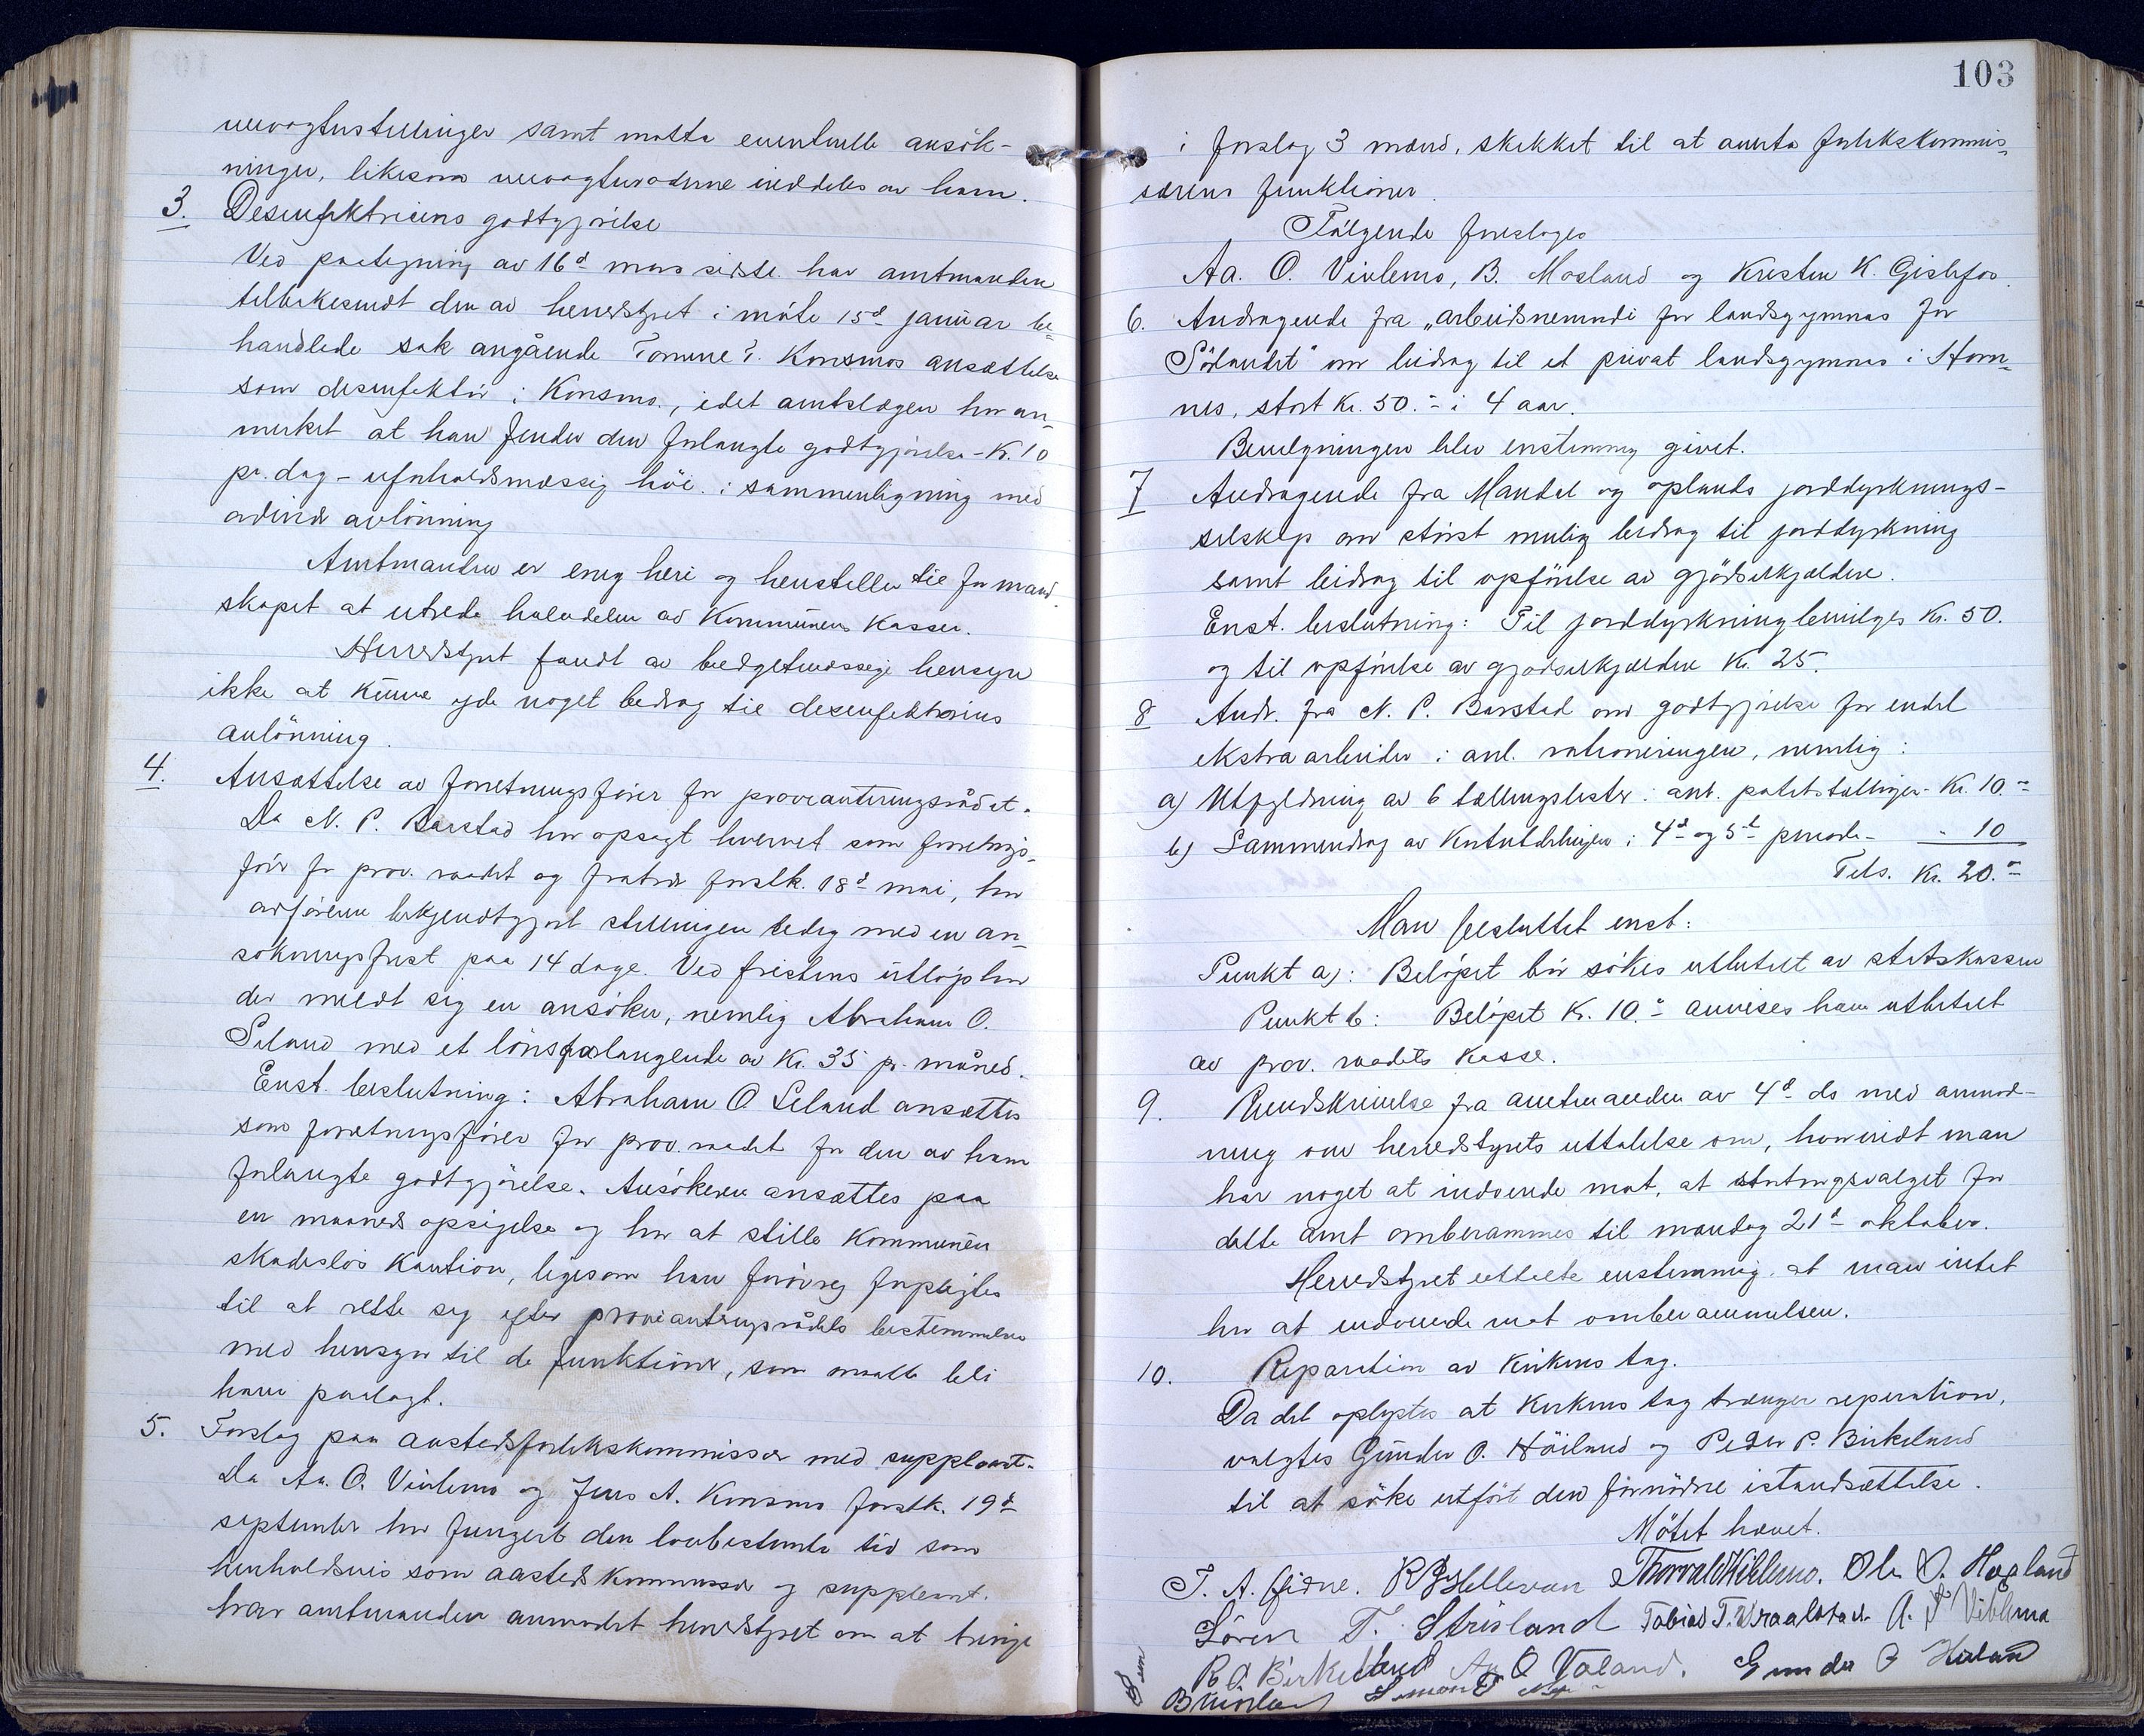 uuvagtustillinger samt motta eventuelle ansök-
ninger, likesom inddeles av ham.
3. Desinfektriens godtgjörelse
Ved paategning av 16d mars sidste har amtmanden
tilbakesendt den av herredstyret i möte 15d januar be-
handlede sak angående Tomine T. Konsmos ansættelse
som desinfektör i Konsmo, idet amtslægen har an-
merket at han finder den forlangte godtgjörelse - Kr. 10
pr. dag - uforholdsmæssig höi i sammenligning med
avlönning
Amtmanden er enig heri og henstiller til formand-
skapet at utrede halvdelen av Kommunens Kasser.
Herredstyret fandt av budgetmæssige hensyn
ikke at kunne yde noget bedrag til desinfektriens
avlönning.
4. Ansættelse av forretningsförer for provianteringsrådet.
Da N. P. Barstad har opsagt hvervet som forretnings-
förer for prov. raadet og fratrer forslk. 18d mai, har
ordföreren bekjendtgjort stillingen ledig med en an-
sökningsfrist paa 14 dage. Ved fristens utlöp har
der meldt sig en ansöker, nemlig Abraham O.
Seland med et lönsforlangende av Kr. 35 pr. måned.
Enst. beslutning: Abraham O Seland ansættes
som forretningsförer for prov. raadet for den av ham
forlangte godtgjörelse. Ansökeren ansættes paa
en maaneds opsigelse og har at stille Kommunen
skadeslös Kaution, ligesom han forövrig forpligtes
til at rette sig efter provianteringsrådets bestemmelser
med hensyn til de funktioner, som maatte bli
ham paalagt.
5. Forslag paa aastedsforlikskommissær med suppleant.
Da Aa. O. Viblemo og Jens A. Konsmo forslk. 19d
september har fungert den lovbestemte tid som
henholdsvis som aastedskommissær og suppleant.
har amtmanden anmodet herredstyret om at bringe
103
i forslag 3 mænd, skikket til at overta forlikskommis-
særens funktioner.
Fölgende foreslages
Aa. O. Viblemo, B. Mosland og Kristen K. Gislefos.
6. Andragende fra „arbeidsnemndi for landsgymnas for
Sörlandet" om bidrag til et privat landsgymnas i Horn-
nes, stort Kr. 50.- i 4 aar.
Bevilgningen blev enstemmig givet.
7 Andragende fra Mandal og oplands jorddyrknings-
selskap om störst mulig bidrag til jorddyrkning
samt bidrag til opförelse av gjödselkjældere.
Enst. beslutning: Til jorddyrkning bevilges Kr. 50.
og til opförelse av gjödselkjældere Kr. 25.
8 Andr. fra N. P. Barstad om godtgjörelse for endel
ekstra arbeider i anl. rationeringen, nemlig:
a) Utfyldning av 6 tællingslister i anl. potettællingen - Kr. 10.-
b) Sammendrag av Kortutdelingen i 4d og 5d periode - " 10
Tils. Kr. 20.-
Man besluttet enst:
Punkt a): Belöpet bör sökes utbetalt av statskassen
Punkt b: Belöpet Kr. 10.- anvises ham utbetalt
av prov. raadets Kasse.
9. Rundskrivelse fra amtmanden av 4d ds med anmod-
ning om herredstyrets uttalelse om, hvorvidt man
har noget at indvende mot, at stortingsvalget for
dette amt omberammes til mandag 21d oktober.
Herredstyret uttalte enstemmig at man intet
har at indvende mot omberammelsen.
10. Reparation av kirkens tag.
Da det oplystes at kirkens tag trænger reperation,
valgtes Gunder O. Höiland og Peder P. Birkeland
til at söke utfört den fornödne istandsættelse.
Mötet hævet.
T. A. Eidne. Helleran Thorvald Viblemo. Ole O. Hægland
Sören T. Strisland Tobias T. A. T Viblemo
R. O. Birkeland Aa O Valand. Gunder O Höiland